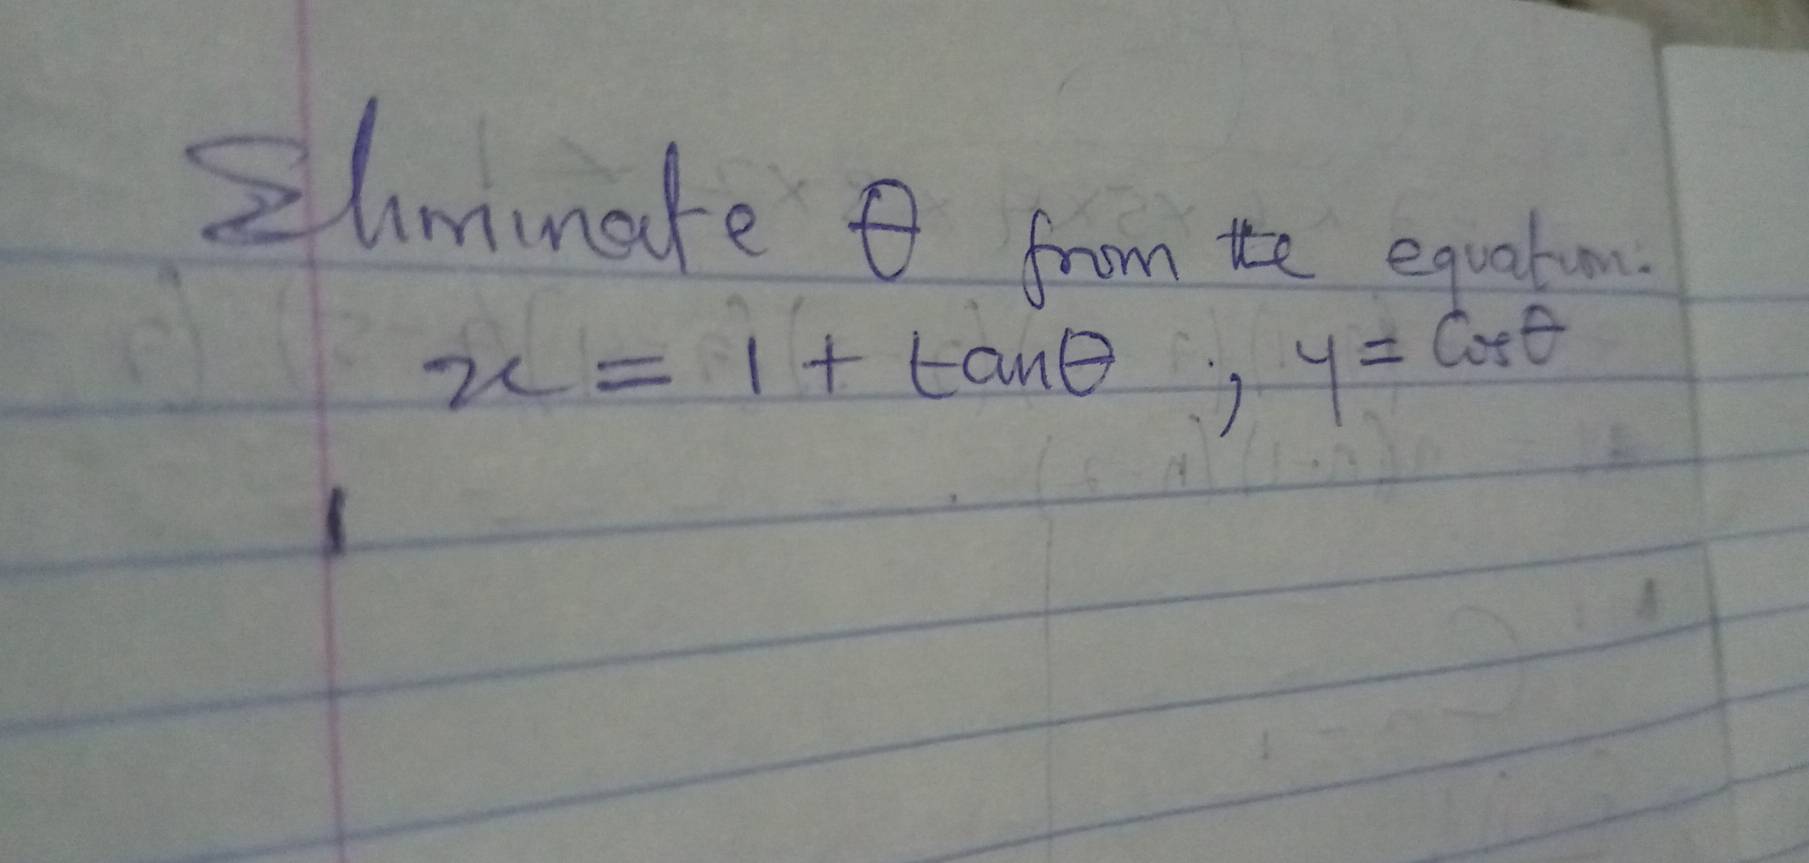 Eliminate θ from the equation.
x = 1 + tanθ , y = Cosθ